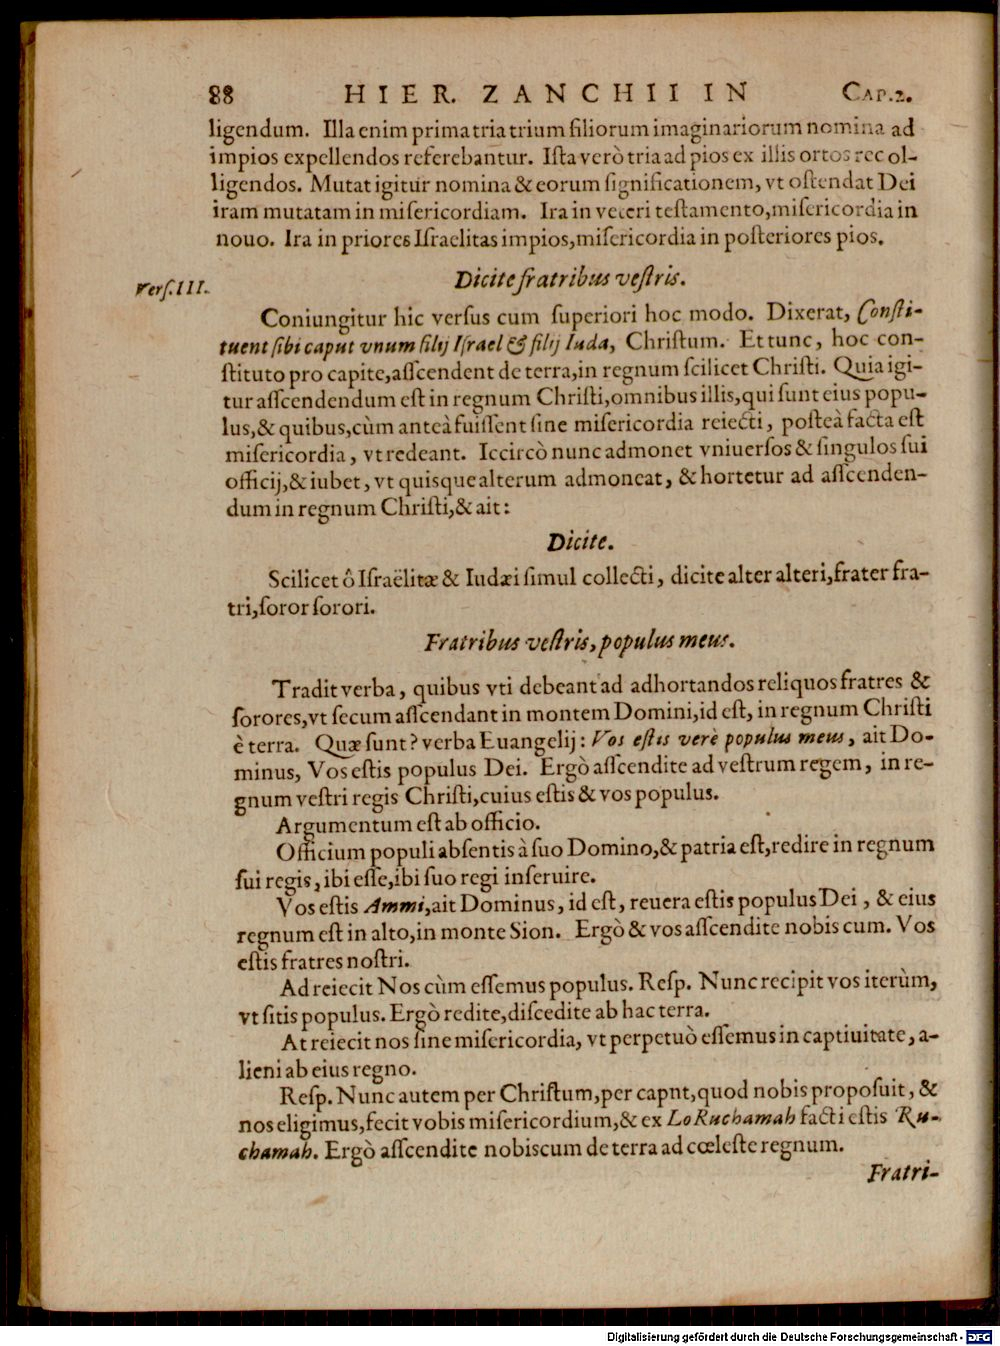 88 HIER. ZANCHII IN CAP.2.
ligendum. Illa enim prima tria trium filiorum imaginariorum nomina ad
impios expellendos referebantur. Iſta verò tria ad pios ex illis ortos recol-
ligendos. Mutat igitur nomina & eorum ſignificationem, vt oſtendat Dei
iram mutatam in miſericordiam. Ira in veteri teſtamento, miſericordia in
nouo. Ira in priores Iſraelitas impios, miſericordia in poſteriores pios.
Dicite fratribus veſtris.
Verſ. III.
Coniungitur hic verſus cum ſuperiori hoc modo. Dixerat, Conſti-
tuent ſibi caput vnum filij Iſrael & filij Iuda, Chriſtum. Et tunc, hoc con-
ſtituto pro capite, aſſcendent de terra, in regnum ſcilicet Chriſti. Quia igi-
tur aſſcendendum eſt in regnum Chriſti, omnibus illis, qui ſunt eius popu-
lus, & quibus, cùm anteà fuiſſent ſine miſericordia reiecti, poſteà facta eſt
miſericordia, vt redeant. Iccircò nunc admonet vniuerſos & ſingulos ſui
officij, & iubet, vt quisque alterum admoneat, & hortetur ad aſſcenden-
dum in regnum Chriſti, & ait:
Dicite.
Scilicet ô Iſraëlitæ & Iudæi ſimul collecti, dicite alter alteri, frater fra-
tri, ſoror ſorori.
Fratribus veſtris, populus meus.
Tradit verba, quibus vti debeant ad adhortandos reliquos fratres &
ſorores, vt ſecum aſſcendant in montem Domini, id eſt, in regnum Chriſti
è terra. Quæ ſunt? verba Euangelij: Vos eſtis verè populus meus, ait Do-
minus, Vos eſtis populus Dei. Ergò aſſcendite ad veſtrum regem, in re-
gnum veſtri regis Chriſti, cuius eſtis & vos populus.
Argumentum eſt ab officio.
Officium populi abſentis à ſuo Domino, & patria eſt, redire in regnum
ſui regis, ibi eſſe, ibi ſuo regi inſeruire.
Vos eſtis Ammi, ait Dominus, id eſt, reuera eſtis populus Dei, & eius
regnum eſt in alto, in monte Sion. Ergò & vos aſſcendite nobis cum. Vos
eſtis fratres noſtri.
Ad reiecit Nos cùm eſſemus populus. Reſp. Nunc recipit vos iterùm,
vt ſitis populus. Ergò redite, diſcedite ab hac terra.
At reiecit nos ſine miſericordia, vt perpetuò eſſemus in captiuitate, a-
lieni ab eius regno.
Reſp. Nunc autem per Chriſtum, per capnt, quod nobis propoſuit, &
nos eligimus, fecit vobis miſericordium, & ex Lo Ruchamah facti eſtis Ru-
chamah. Ergò aſſcendite nobiscum de terra ad cœleſte regnum.
Fratri-
Digitalisierung gefördert durch die Deutsche Forschungsgemeinschaft - DFG